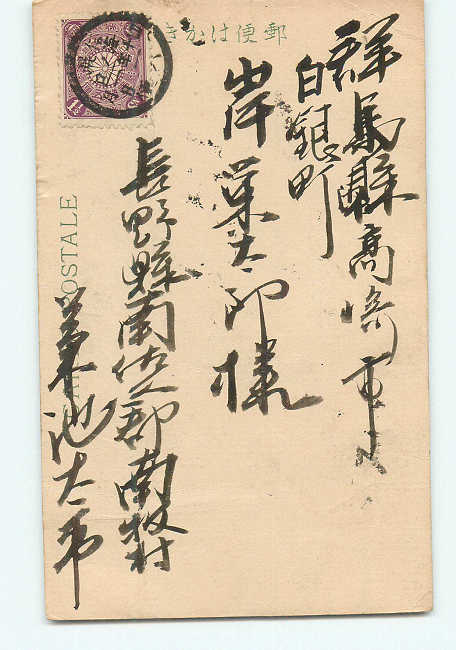 郵便はかき
群馬縣高崎市
白銀町
岸菊太郎様
長野縣南佐久郡南牧村
菊池
POSTALE
1½